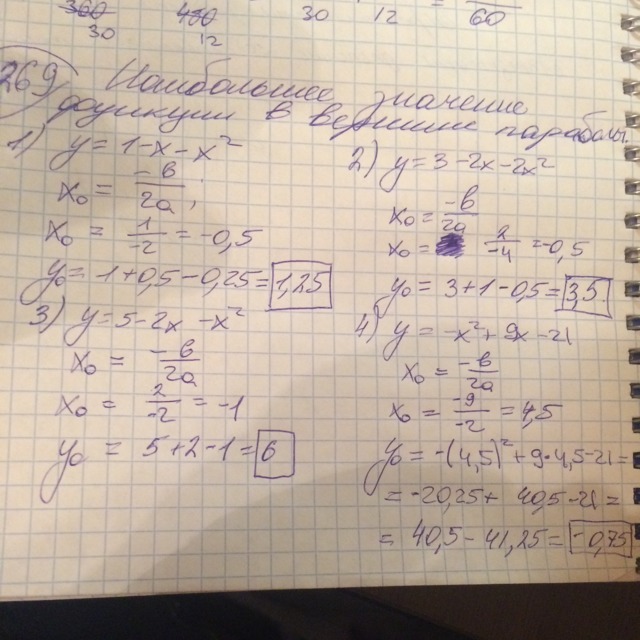 360 480 30 12 = 60
30 12
269 Наибольшее значение
функции в вершине параболы.
1) y = 1 - x - x²
x₀ = -b/2a;
x₀ = 1/-2 = -0,5
y₀ = 1 + 0,5 - 0,25 = 1,25
2) y = 3 - 2x - 2x²
x₀ = -b/2a
x₀ = 2/-4 = -0,5
y₀ = 3 + 1 - 0,5 = 3,5
3) y = 5 - 2x - x²
x₀ = -b/2a
x₀ = 2/-2 = -1
y₀ = 5 + 2 - 1 = 6
4) y = -x² + 9x - 21
x₀ = -b/2a
x₀ = -9/-2 = 4,5
y₀ = -(4,5)² + 9·4,5 - 21 =
= -20,25 + 40,5 - 21 =
= 40,5 - 41,25 = -0,75